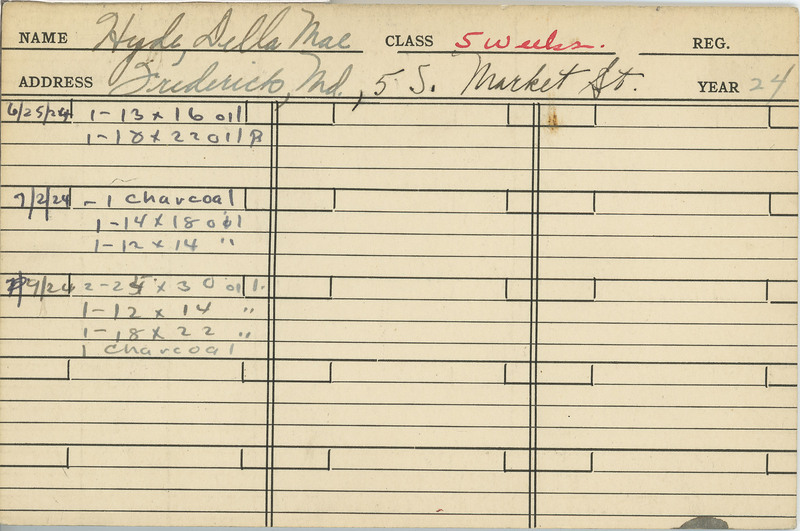 NAME Hyde, Della Mae CLASS 5 weeks. REG.
ADDRESS Frederick, Md., 5 S. Market St. YEAR 24
6/25/24 1-13 x 16 oil
1-18 x 22 oil P
7/2/24 - 1 charcoal
1-14 x 18 oil
1-12 x 14 "
7/9/24 2-25 x 30 oil.
1-12 x 14 "
1-18 x 22 "
1 charcoal